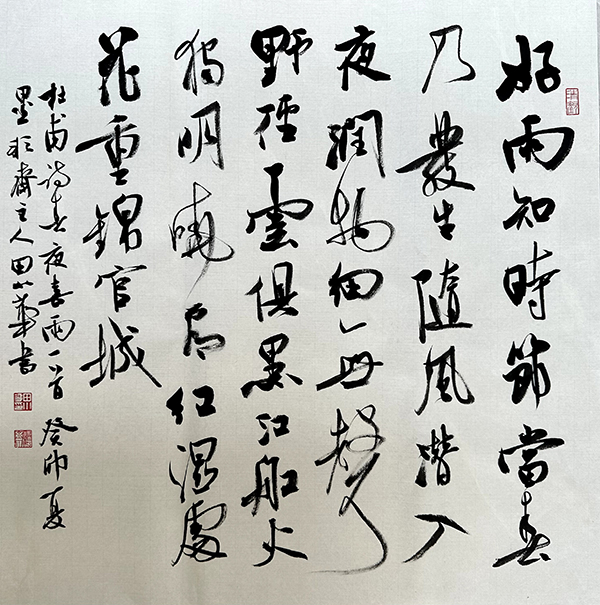 好雨知時節當春
乃發生隨風潛入
夜潤物細無聲
野徑雲俱黑江船火
獨明曉看紅濕處
花重錦官城
杜甫詩春夜喜雨一首 癸卯夏
墨齋主人田華書